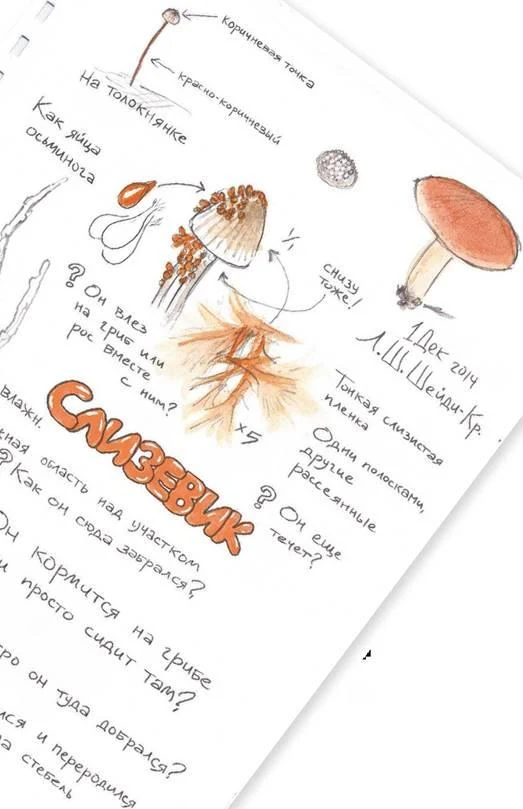 коричневая точка
красно-коричневый
На толокнянке
Как яйца
осьминога
1/1
снизу
тоже!
? Он влез
на гриб или
рос вместе
с ним?
1 Дек 2014
Л.Ш. Шейди-Кр.
×5
Тонкая слизистая
пленка
Одни полосками,
другие
рассеянные
? Он еще
течет?
СЛИЗЕВИК
влажн.
область над участком
? Как он сюда забрался?
Он кормится на грибе
и просто сидит там?
он туда добрался?
и переродился
стебель